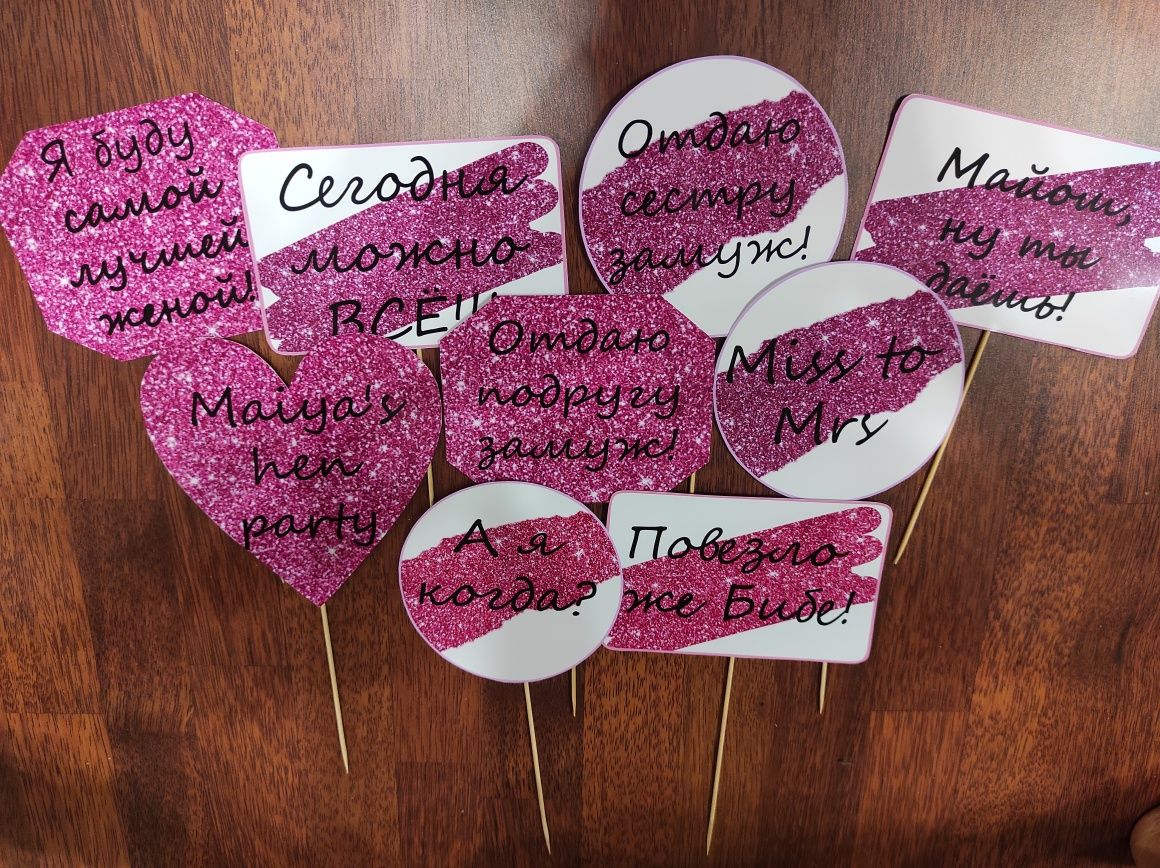 Я буду
самой
лучшей
женой!
Сегодня
можно
ВСЁ!!!
Отдаю
сестру
замуж!
Майош,
ну ты
даёшь!
Maiya's
hen
party
Отдаю
подругу
замуж!
Miss to
Mrs
А я
когда?
Повезло
же Бибе!